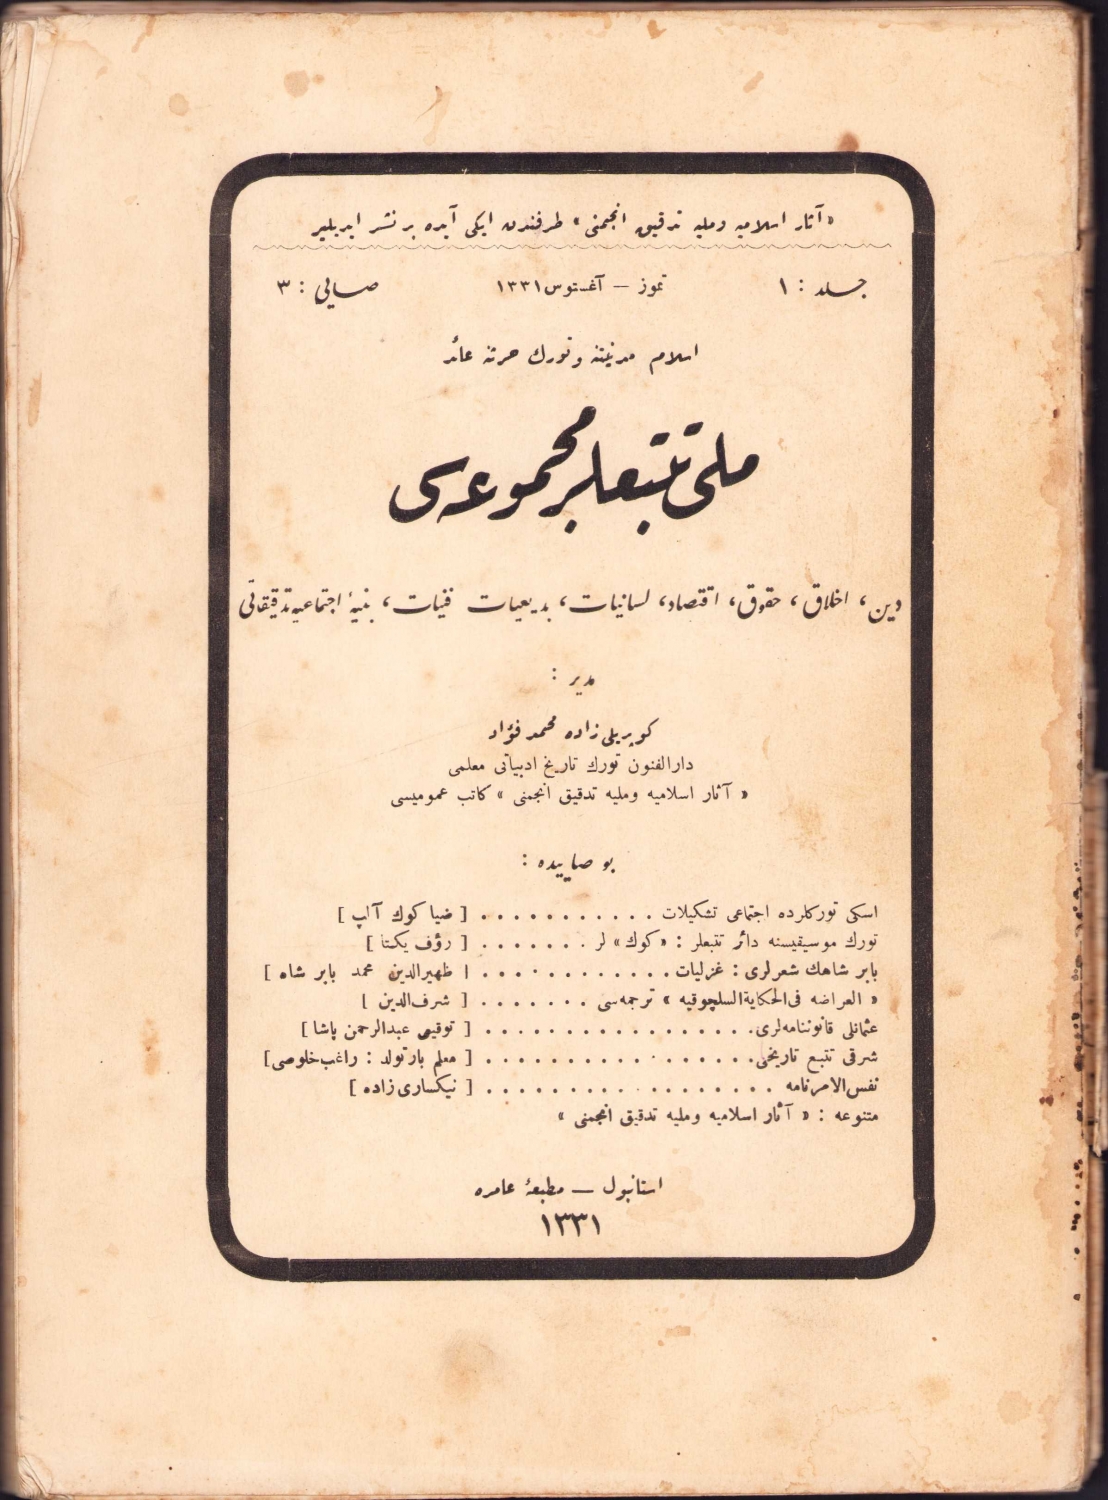 « آثار اسلامیه وملیه تدقیق انجمنی » طرفندن ایکی آیده بر نشر ایدیلیر
جلد : ١ تموز — آغستوس ١٣٣١ صایی : ٣
اسلام مدنیتنه وتورك حرثنه عائد
ملی تتبعلر مجموعه‌سی
دین، اخلاق، حقوق، اقتصاد، لسانیات، بدیعیات فنیات، بنیۀ اجتماعیه تدقیقاتی
مدیر :
كوپریلی زاده محمد فؤاد
دارالفنون تورك تاریخ ادبیاتی معلمی
« آثار اسلامیه وملیه تدقیق انجمنی » كاتب عمومیسی
بو صاییده :
اسكی توركلرده اجتماعی تشكیلات . . . . . . . . . . . [ ضیا كوك آلپ ]
تورك موسیقیسنه دائر تتبعلر : «كوك» لر . . . . . . . [ رؤف یكتا ]
بابر شاهك شعرلری : غزلیات . . . . . . . . . . . . [ ظهیرالدین محمد بابر شاه ]
« العراضه فی‌الحكایةالسلچوقیه » ترجمه‌سی . . . . . . . [ شرف‌الدین ]
عثمانلی قانوننامه‌لری . . . . . . . . . . . . . . . . . [ توقیعی عبدالرحمن پاشا ]
شرقی تتبع تاریخی . . . . . . . . . . . . . . . . . [ معلم بارتولد : راغب خلوصی ]
نفس‌الامرنامه . . . . . . . . . . . . . . . . . . [ نیكساری زاده ]
متنوعه : « آثار اسلامیه وملیه تدقیق انجمنی »
استانبول — مطبعۀ عامره
١٣٣١